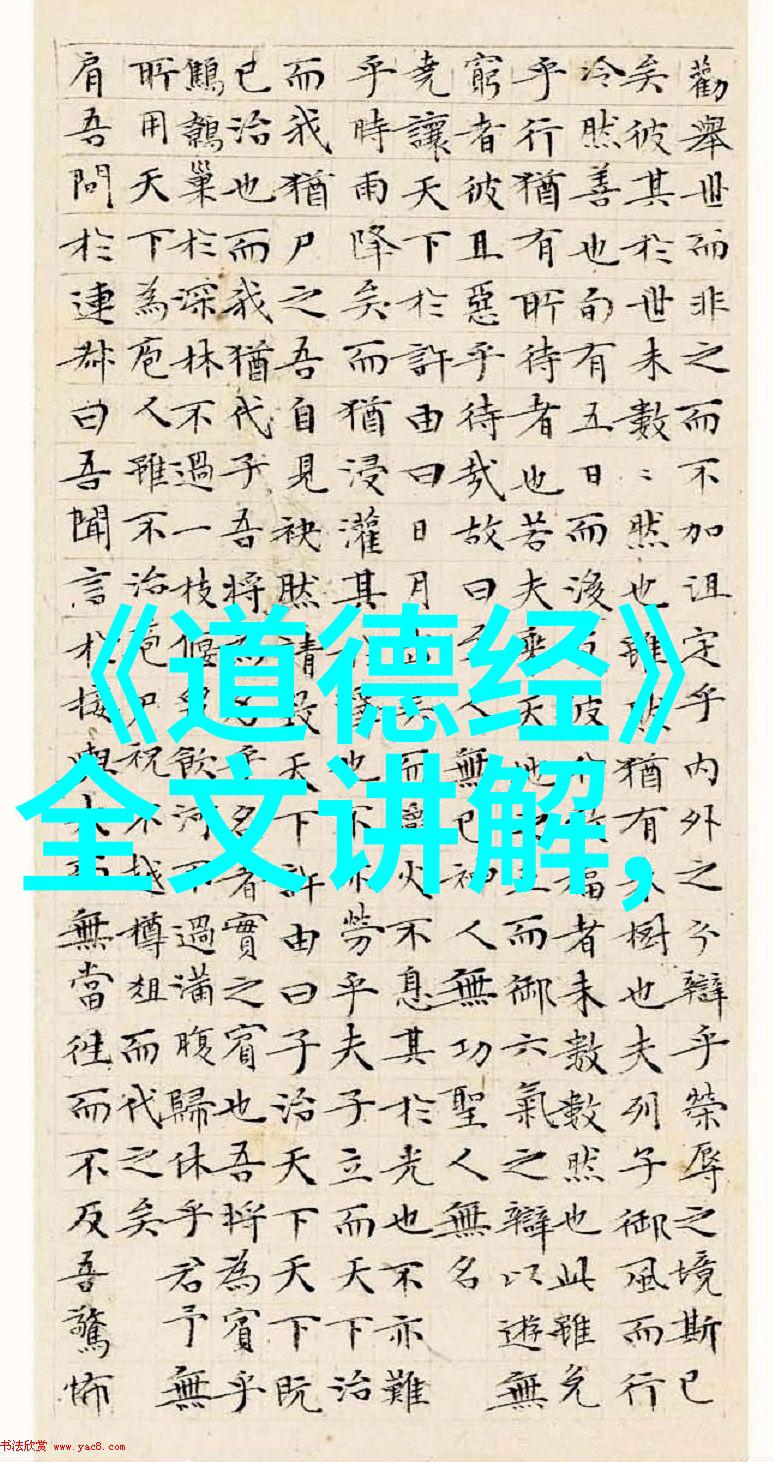 《道德经》
全文讲解,
勸舉世而非之而不加沮定乎內外之分辯乎榮辱之境斯已
矣彼其於世未數〻然也雖然猶有未樹也夫列子御風而行
冷然善也旬有五日而後反彼福者未數數然也此雖免
乎行猶有所待者也若夫乘天地之正而御六氣之辯以遊無
窮者彼且惡乎待哉故曰至人無已神人無功聖人無名
堯讓天下於許由曰日月出矣而爝火不息其於光也不亦難
乎時雨降矣而猶浸灌其澤也不亦勞乎夫子立而天下治
而我猶尸之吾自見缺然請致天下許由曰子治天下天下既
已治也而我猶代子吾將為名乎名者實之賓也吾將為賓乎
鷦鷯巢於深林不過一枝偃鼠飲河不過滿腹歸休乎君予無
所用天下為庖人雖不治庖尸祝不越樽俎而代之矣
肩吾問於連叔曰吾聞言於接輿大而無當往而不反吾驚怖
书法欣赏 www.yac8.com